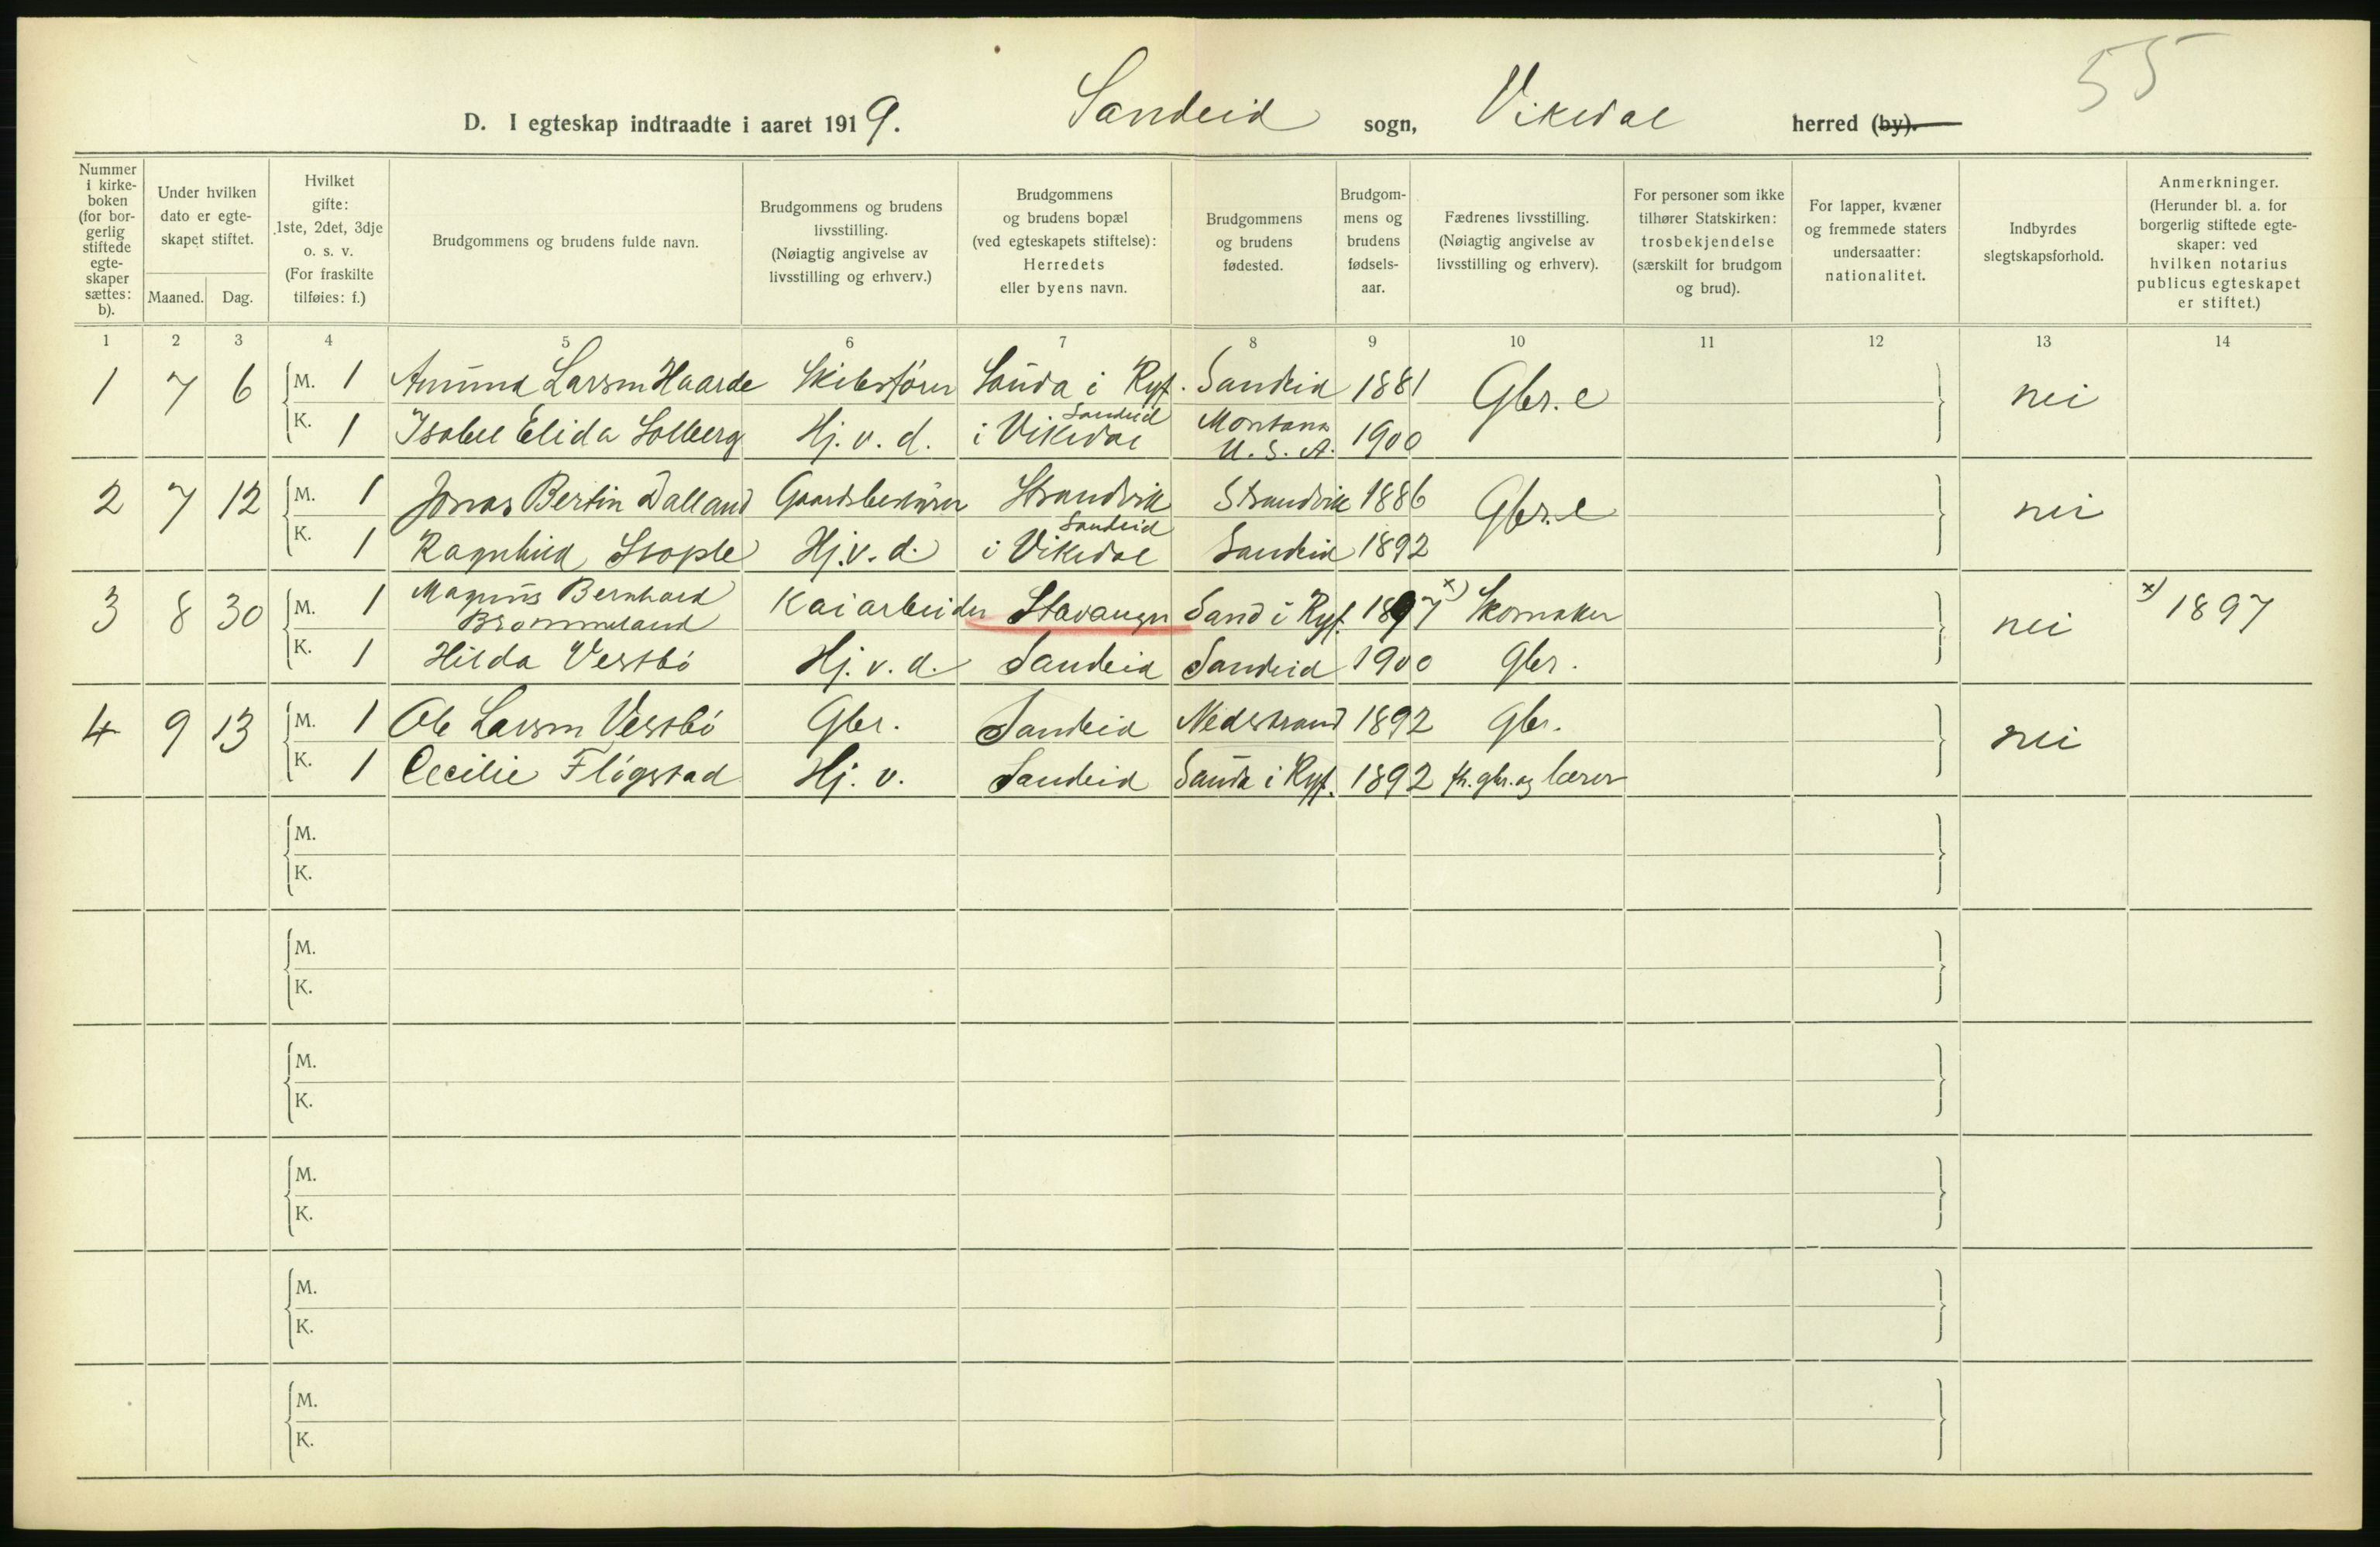 55
D. I egteskap indtraadte i aaret 1919. Sandeid sogn, Vikedal herred (by).
Nummer i kirke-boken (for bor-gerlig stiftede egte-skaper sættes: b).
Under hvilken dato er egte-skapet stiftet.
Maaned. Dag.
Hvilket gifte: 1ste, 2det, 3dje o. s. v. (For fraskilte tilføies: f.)
Brudgommens og brudens fulde navn.
Brudgommens og brudens livsstilling. (Nøiagtig angivelse av livsstilling og erhverv.)
Brudgommens og brudens bopæl (ved egteskapets stiftelse): Herredets eller byens navn.
Brudgommens og brudens fødested.
Brudgom-mens og brudens fødsels-aar.
Fædrenes livsstilling. (Nøiagtig angivelse av livsstilling og erhverv).
For personer som ikke tilhører Statskirken: trosbekjendelse (særskilt for brudgom og brud).
For lapper, kvæner og fremmede staters undersaatter: nationalitet.
Indbyrdes slegtskapsforhold.
Anmerkninger. (Herunder bl. a. for borgerlig stiftede egte-skaper: ved hvilken notarius publicus egteskapet er stiftet.)
1 2 3 4 5 6 7 8 9 10 11 12 13 14
1 7 6 M. 1 Amund Larsen Haarde Skibsfører Sauda i Ryf. Sandeid 1881 Gbr.e nei
K. 1 Isabel Elida Solberg Hj. v. d. Sandeid i Vikedal Montana U. S. A. 1900
2 7 12 M. 1 Jonas Bertin Dalland Gaardsbestyrer Strandvik Strandvik 1886 Gbr.e nei
K. 1 Ragnhild Stople Hj. v. d. Sandeid i Vikedal Sandeid 1892
3 8 30 M. 1 Magnus Bernhard Brommeland Kaiarbeider Stavanger Sand i Ryf. 1897 x) Skomaker nei x) 1897
K. 1 Hilda Vestbö Hj. v. d. Sandeid Sandeid 1900 Gbr.
4 9 13 M. 1 Ole Larsen Vestbö Gbr. Sandeid Nedstrand 1892 Gbr. nei
K. 1 Cecilie Flögstad Hj. v. Sandeid Sauda i Ryf. 1892 fh. gbr. og lærer
M.
K.
M.
K.
M.
K.
M.
K.
M.
K.
M.
K.